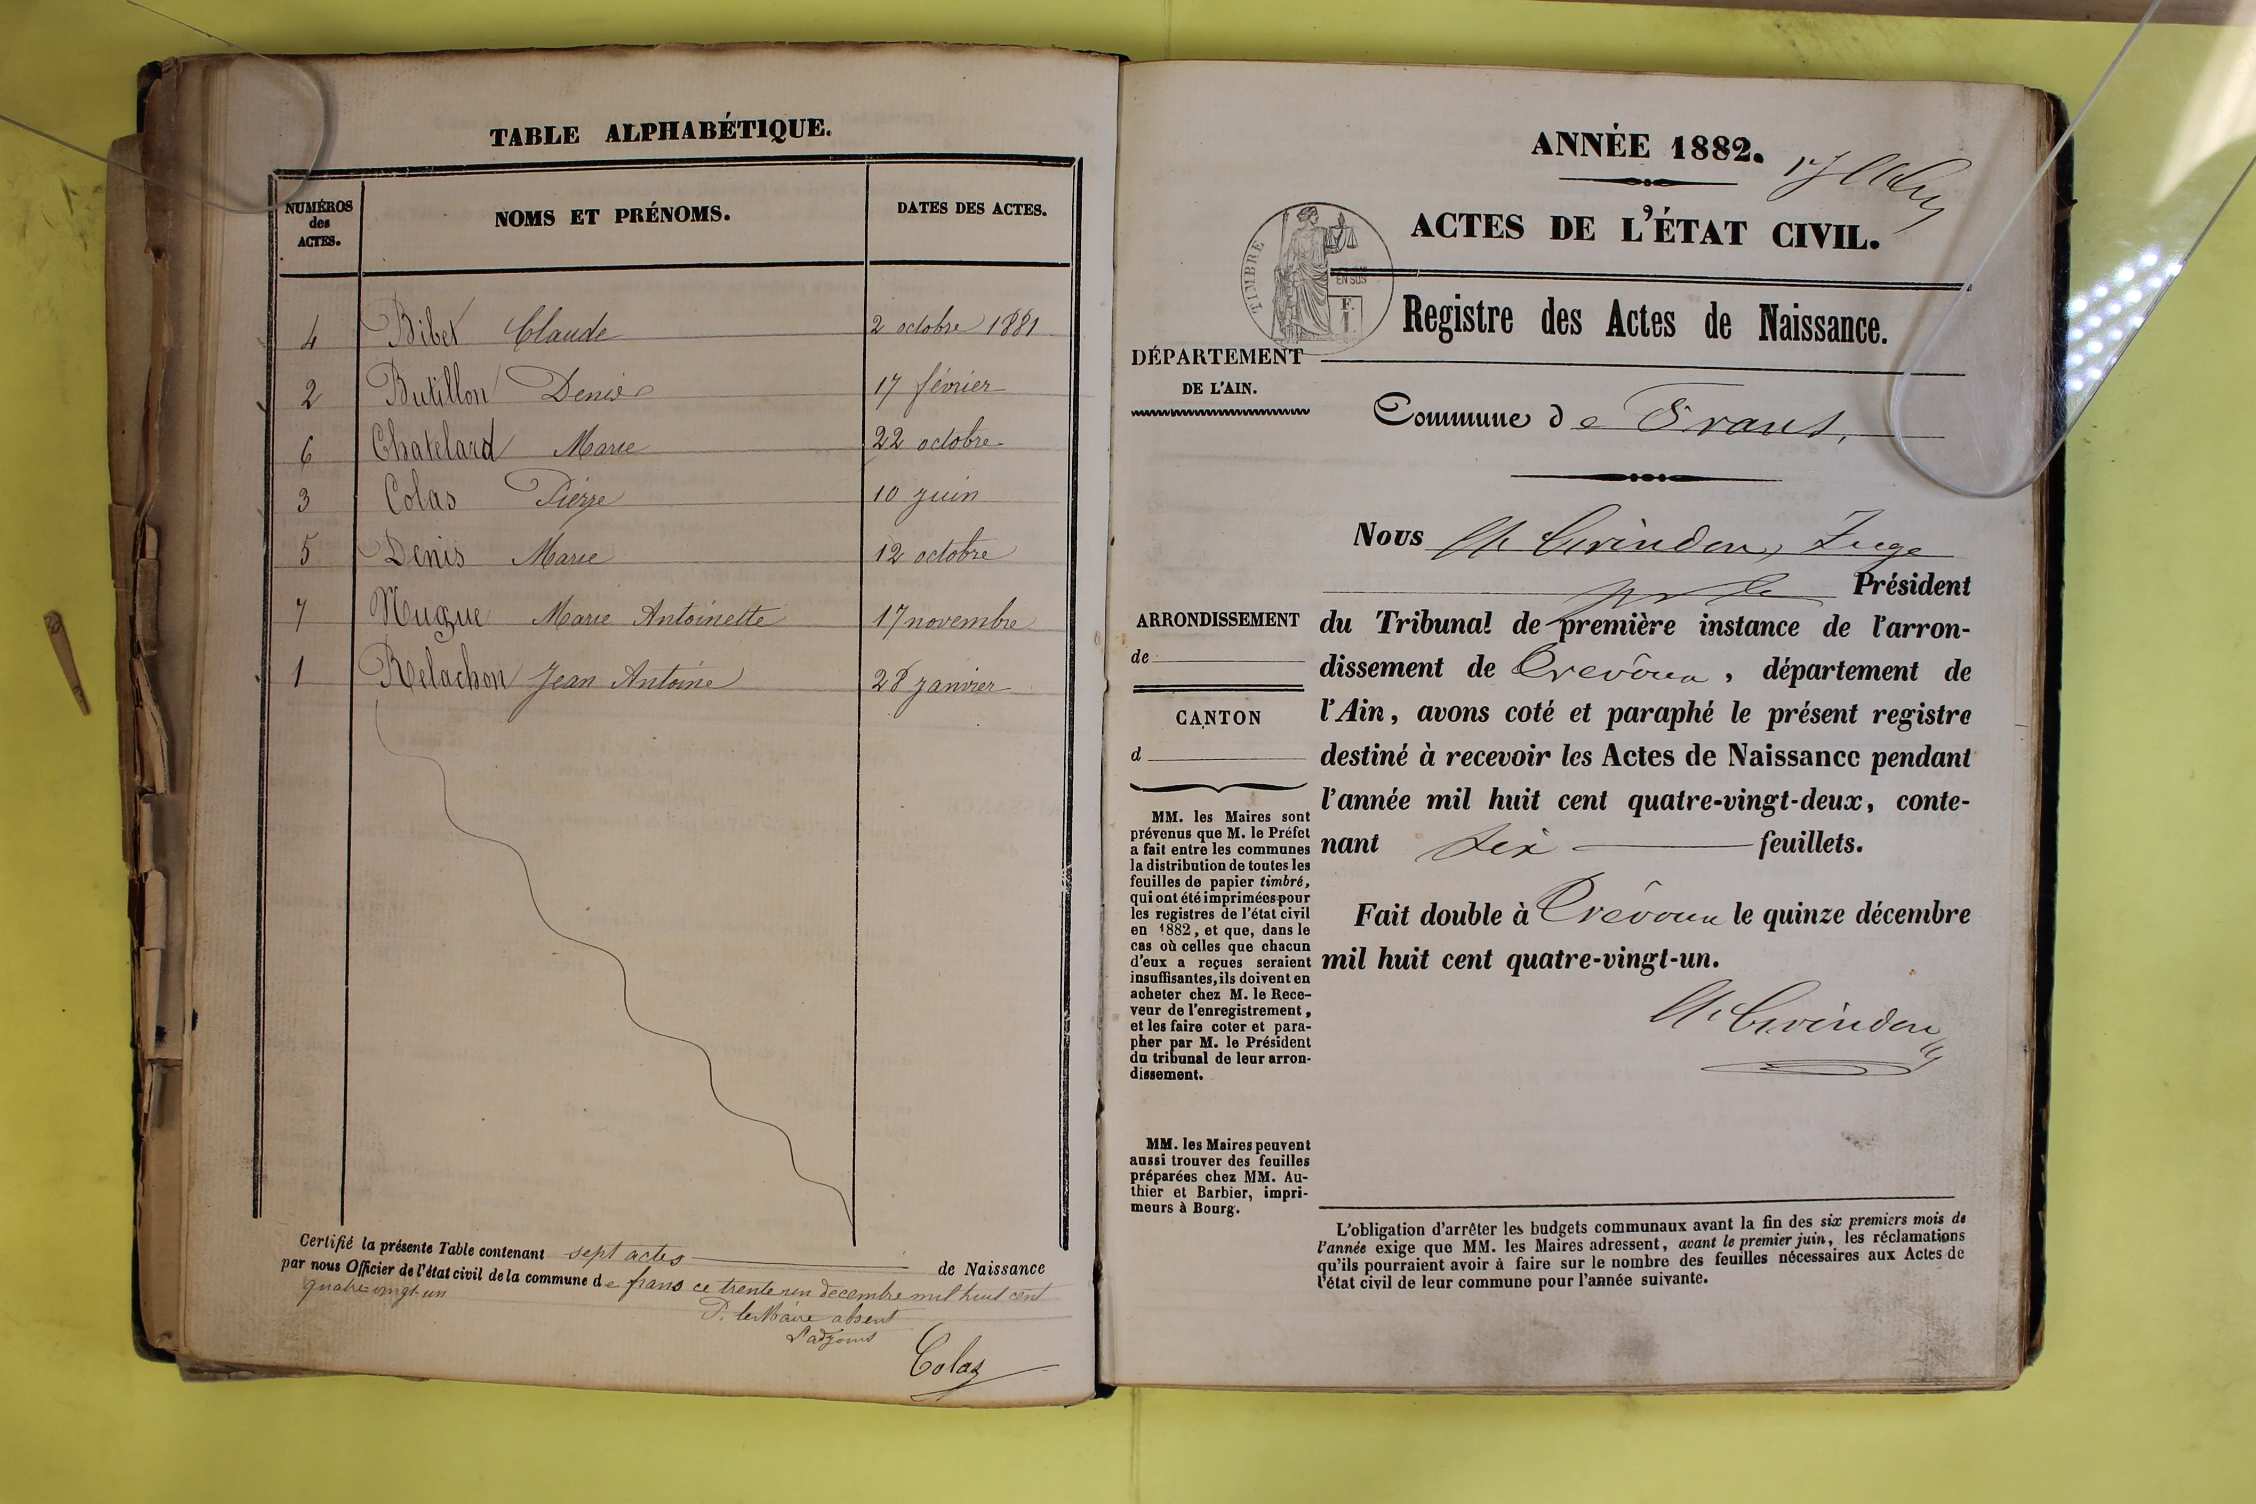 TABLE ALPHABÉTIQUE.
NUMÉROS des ACTES.
NOMS ET PRÉNOMS.
DATES DES ACTES.
4 Bibet Claude 2 octobre 1881
2 Butillon Denis 17 février
6 Chatelard Marie 22 octobre
3 Colas Pierre 10 juin
5 Denis Marie 12 octobre
7 Nugue Marie Antoinette 17 novembre
1 Relachon Jean Antoine 28 janvier
Certifié la présente Table contenant sept actes de Naissance
par nous Officier de l'état civil de la commune de frans ce trente un décembre mil huit cent
quatre-vingt-un
P. le Maire absent
L'adjoint
Colas
ANNÉE 1882.
ACTES DE L'ÉTAT CIVIL.
TIMBRE
EN SUS
F.
1.
Registre des Actes de Naissance.
DÉPARTEMENT
DE L'AIN.
Commune de Frans,
ARRONDISSEMENT
de
CANTON
d
MM. les Maires sont
prévenus que M. le Préfet
a fait entre les communes
la distribution de toutes les
feuilles de papier timbré,
qui ont été imprimées pour
les registres de l'état civil
en 1882, et que, dans le
cas où celles que chacun
d'eux a reçues seraient
insuffisantes, ils doivent en
acheter chez M. le Rece-
veur de l'enregistrement,
et les faire coter et para-
pher par M. le Président
du tribunal de leur arron-
dissement.
MM. les Maires peuvent
aussi trouver des feuilles
préparées chez MM. Au-
thier et Barbier, impri-
meurs à Bourg.
Nous Juge
Président
du Tribunal de première instance de l'arron-
dissement de Trévoux, département de
l'Ain, avons coté et paraphé le présent registre
destiné à recevoir les Actes de Naissance pendant
l'année mil huit cent quatre-vingt-deux, conte-
nant six feuillets.
Fait double à Trévoux le quinze décembre
mil huit cent quatre-vingt-un.
L'obligation d'arrêter les budgets communaux avant la fin des six premiers mois de
l'année exige que MM. les Maires adressent, avant le premier juin, les réclamations
qu'ils pourraient avoir à faire sur le nombre des feuilles nécessaires aux Actes de
l'état civil de leur commune pour l'année suivante.